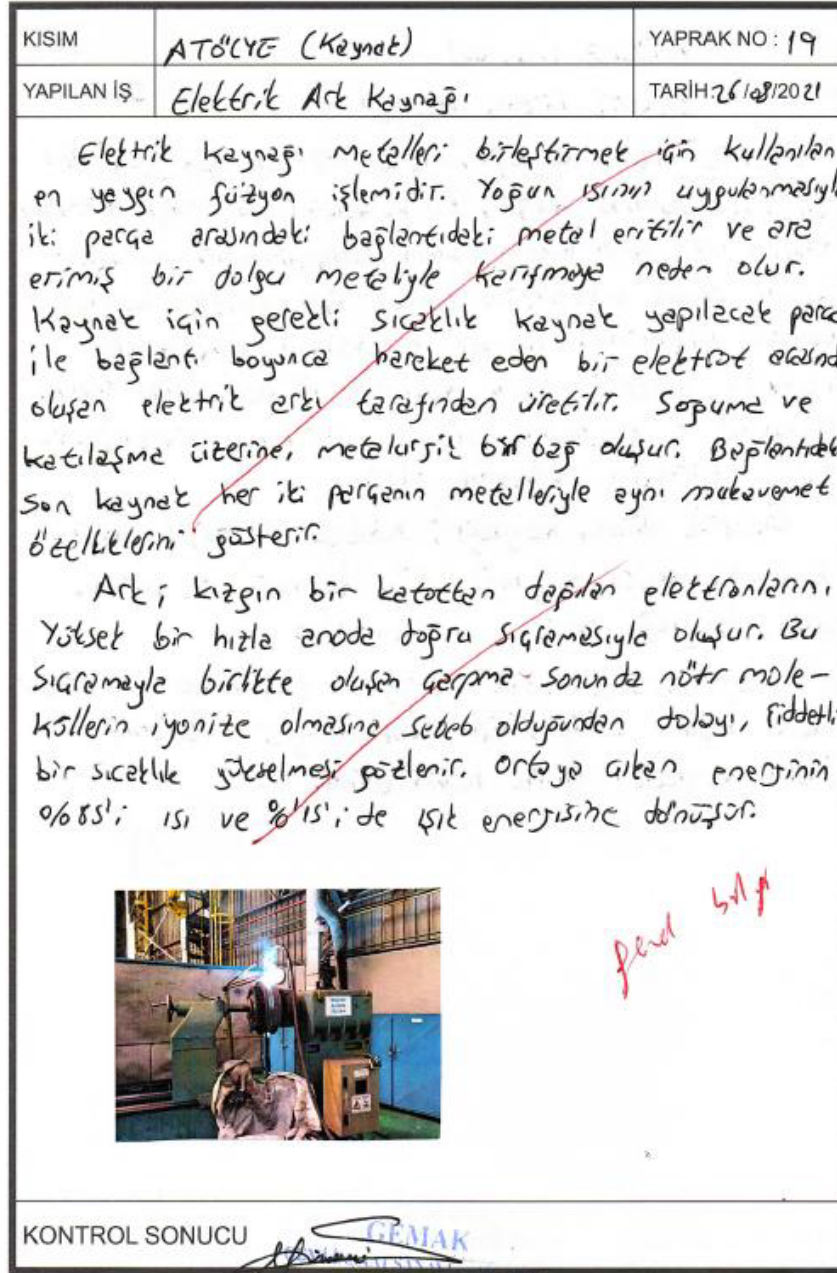 KISIM
ATÖLYE (Kaynak)
YAPRAK NO : 19
YAPILAN İŞ
Elektrik Ark Kaynağı
TARİH: 26/08/2021
Elektrik kaynağı metalleri birleştirmek için kullanılan
en yaygın füzyon işlemidir. Yoğun ısının uygulanmasıyla
iki parça arasındaki bağlantıdaki metal eritilir ve ara
erimiş bir dolgu metaliyle karışmaya neden olur.
Kaynak için gerekli sıcaklık kaynak yapılacak parça
ile bağlantı boyunca hareket eden bir elektrot arasında
oluşan elektrik arkı tarafından üretilir. Soğuma ve
katılaşma üzerine, metalurjik bir bağ oluşur. Bağlantıdaki
son kaynak her iki parçanın metalleriyle aynı mukavemet
özelliklerini gösterir.
Ark; kızgın bir katottan dağılan elektronların,
Yüksek bir hızla anoda doğru sıçramasıyla oluşur. Bu
sıçramayla birlikte oluşan çarpma sonunda nötr mole-
küllerin iyonize olmasına sebeb olduğundan dolayı, şiddetli
bir sıcaklık yükselmesi gözlenir. Ortaya çıkan enerjinin
%85'i ısı ve %15'i de ışık enerjisine dönüşür.
bilgi
KONTROL SONUCU
GEMAK